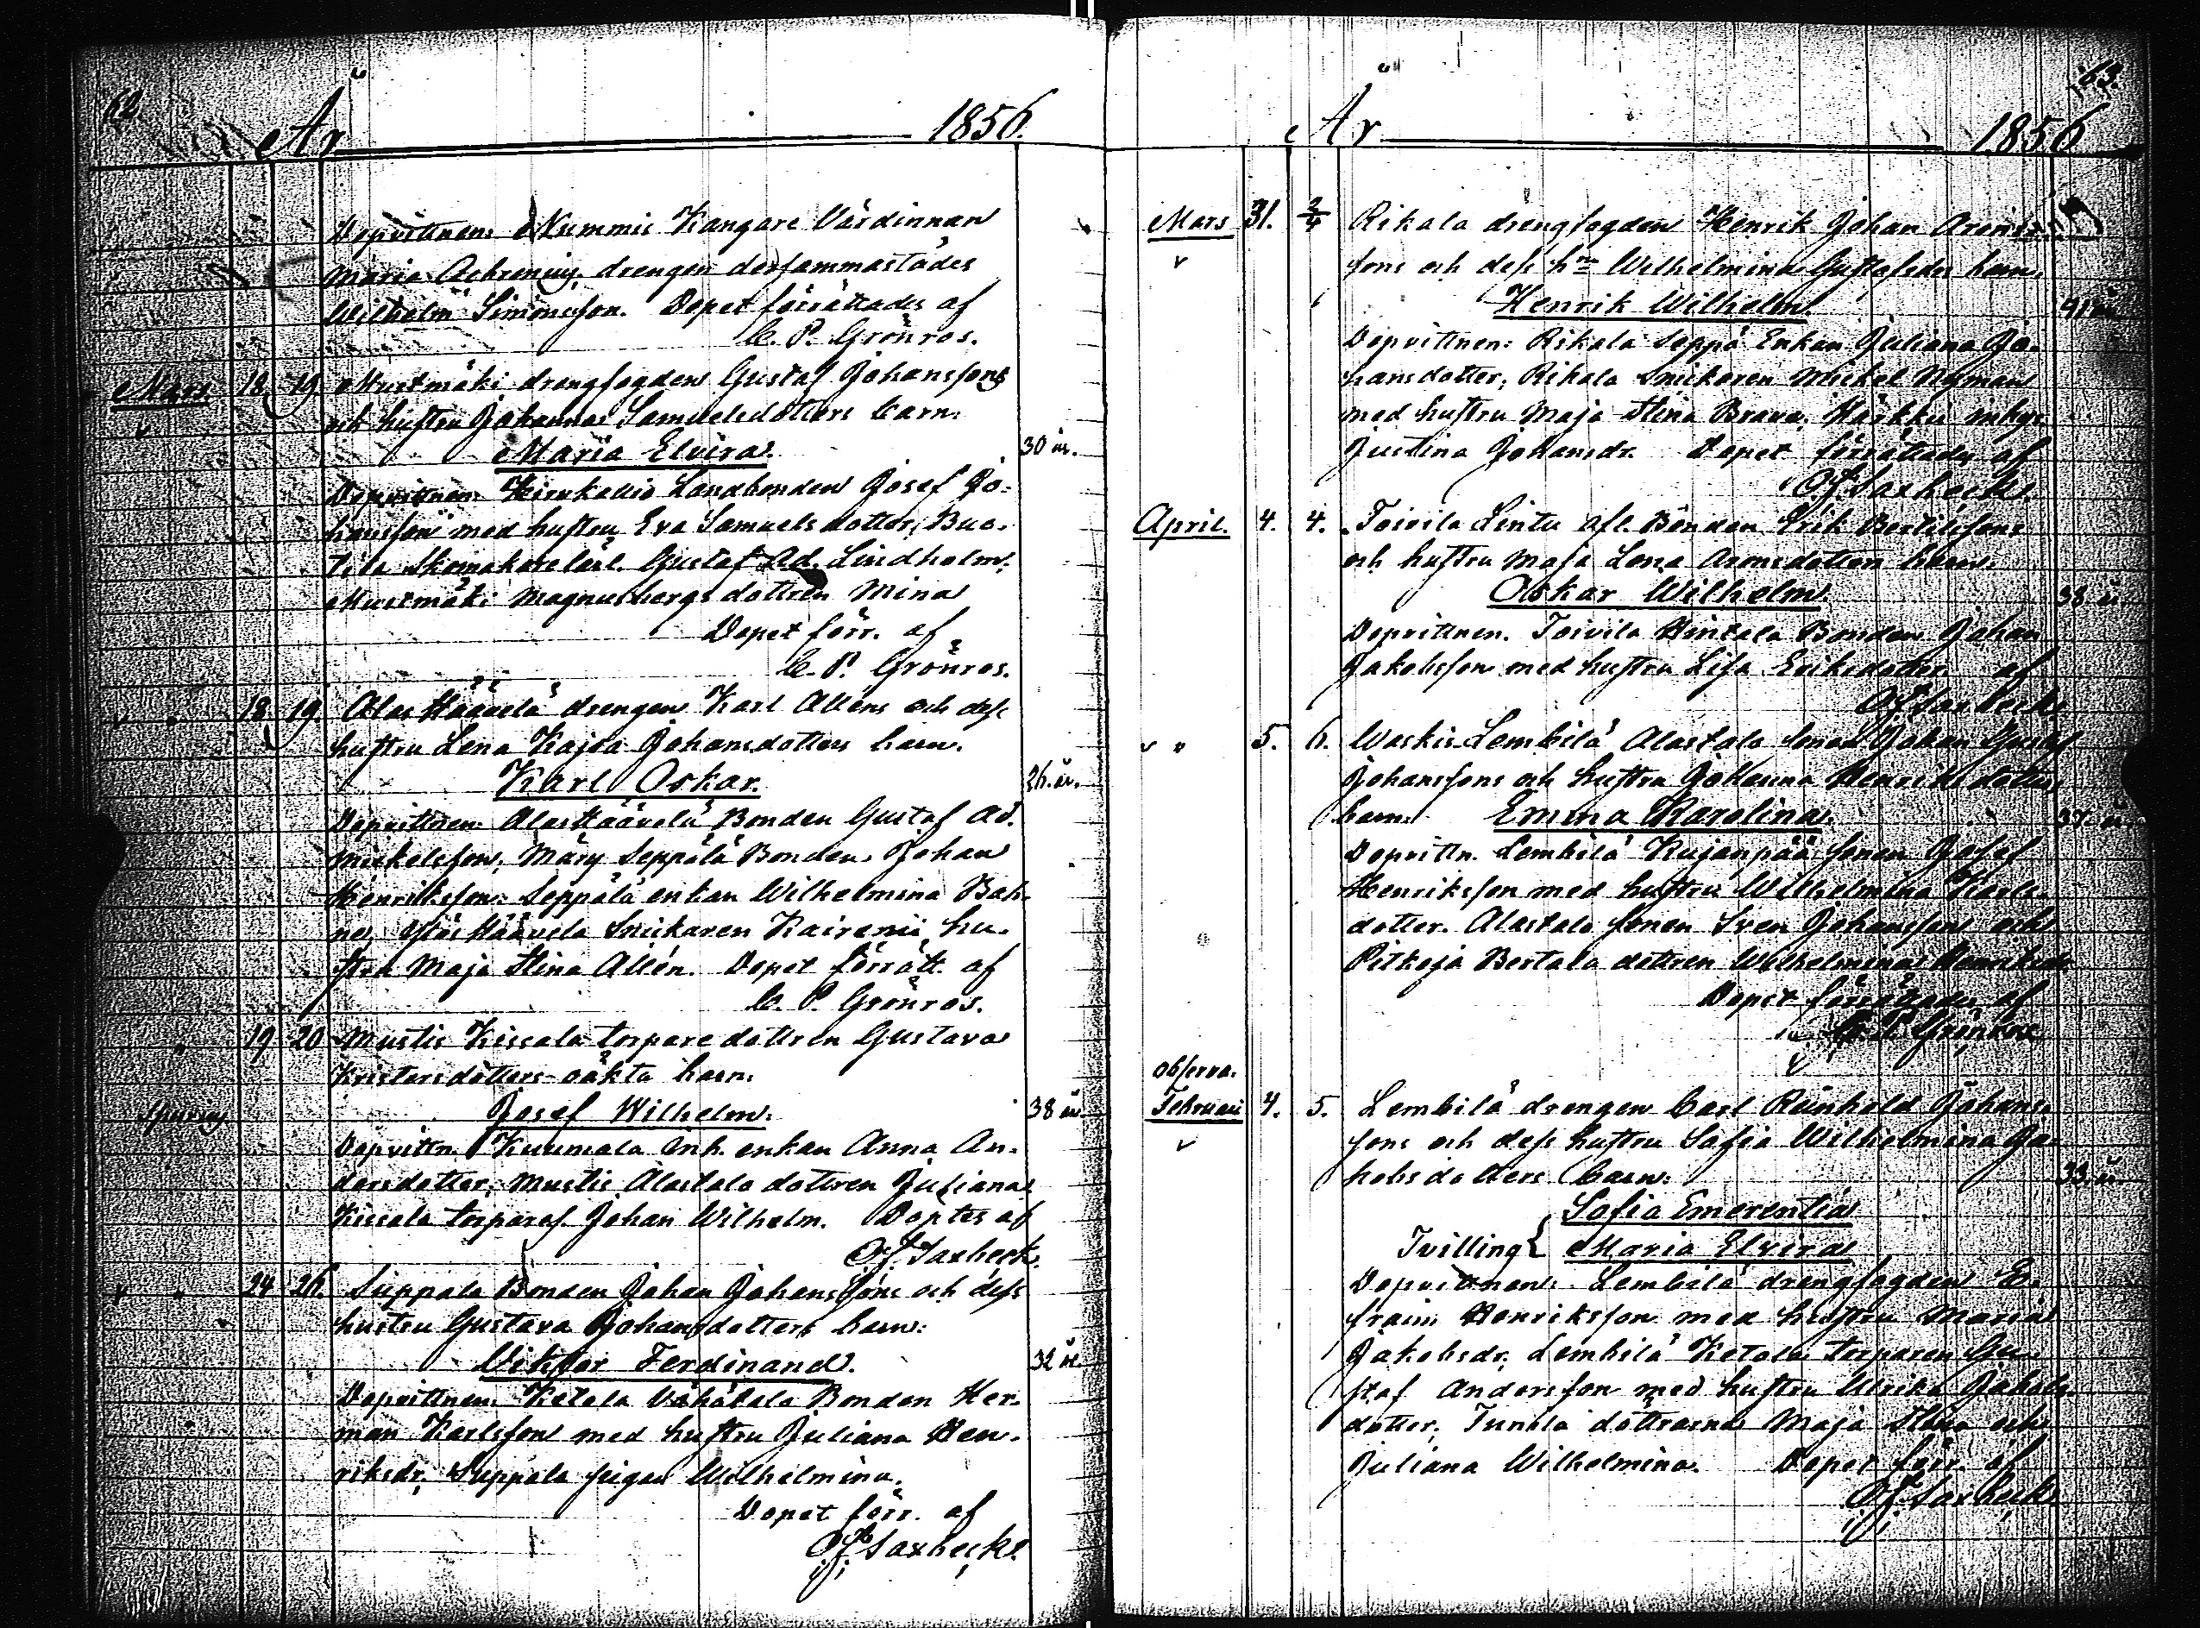 62
År 1856.
Dopvittnen: Nummis Kangare Värdinnan
Maria drengen dersammastädes
Wilhelm Simonsson. Dopet förrättades af
C. P. Grönros.
Mars. 12 19 Mustmäki drengfogden Gustaf Johanssons
och hustru Johanna Samuelsdotters barn:
Maria Elvira. 30 år.
Dopvittnen: Landbonden Josef Jo-
hansson med hustru Eva Samuelsdotter, Buo-
Skomakarelärl. Gustaf Ad. Lindholm,
Mustmäki Magnusbergs dottren Mina
Dopet förr. af
C. P. Grönros.
" 18 19 Alas Häävelä drengen Karl Alléns och dess
hustru Lena Kajsa Johansdotters barn.
Karl Oskar. 26 år.
Dopvittnen: Alas Häävelä Bonden Gustaf Ad.
Mickelsson, Märy Seppälä Bonden Johan
Henriksson, Seppälä enkan Wilhelmina
Häävelä Snickaren hu-
stru Maja Stina Allén. Dopet förrätt. af
C. P. Grönros.
" 19 20 Mustis Kissala torpare dottren Gustava
Kristersdotters oäkta barn.
Josef Wilhelm. 38 år
Dopvittn. Kuumola Inh. enkan Anna An-
dersdotter, Mustis Alastalo dottren Juliana
Kissala Johan Wilhelm. Döptes af
O.J. Saxbeck.
v " 24 26. Suppala Bonden Johan Johanssons och dess
hustru Gustava Johansdotters barn:
Viktor Ferdinand. 32 år.
Dopvittnen. Ketola Vähätalo Bonden Her-
man Karlsson med hustru Juliana Hen-
riksdr, Suppala pigan Wilhelmina.
Dopet förr. af
O.J. Saxbeck.
63.
År 1856
Mars 31. 2/4 Rikala drengfogden Henrik Johan
sons och dess hu Wilhelmina Gustafsdrs barn.
v
Henrik Wilhelm. 41 år
Dopvittnen: Rikala Seppä Enkan Juliana Jo-
hansdotter, Rikala Snickaren Mickel Nyman
med hustru Maja Stina Härkki inhys
Justina Johansdr. Dopet förrättades af
O.J. Saxbeck.
April. 4. 4. Toivila Lintu Bonden Erik Bertilssons
och hustru Maja Lena barn.
Oskar Wilhelm. 38 år
Dopvittnen. Toivila Hintala Bonden Johan
Jakobsson med hustru Lisa Eriksdotter af
O.J. Saxbeck.
v " 5. 6. Waskis Lembilä Alastalo sonen Johan Gustaf
Johanssons och hustru Johanna Henriksdotters
barn. Emma Karolina. 37 år
Dopvittn. Lembilä Kujanpää sonen Josef
Henriksson med hustru Wilhelmina Karls-
dotter. Alastalo sonen Sven Johansson och
Bertala dottren Wilhelmina
Dopet förrättades af
C. P. Grönros
observa.
Februari 4. 5. Lembilä drengen Carl Reinhold Johans-
sons och dess hustru Sofia Wilhelmina Ja-
v
kobsdotters barn: 33 år
Sofia Emerentia
Tvilling { Maria Elvira
Dopvittnen: Lembilä drengfogden E-
fraim Henriksson med hustru Maria
Jakobsdr. Lembilä Ketola Torparen Gu-
staf Andersson med hustru Ulrika Jakobs-
dotter, döttrarna Maja Stina och
Juliana Wilhelmina. Dopet förr. af
O.J. Saxbeck